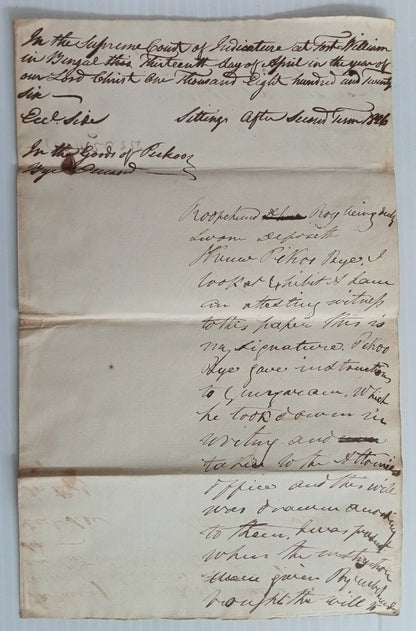 In the Supreme Court of Judicature at Fort William
in Bengal this Thirteenth day of April in the year of
our Lord Christ One Thousand Eight hundred and twenty
six —
Eccl Side Sittings After Second Term 1826
In the Goods of Peekoo
Bye Deceased
Roopchund Roy being duly
Sworn Deposeth
I knew Pikoo Bye, I
look at Exhibit A I am
an attesting witness
to this paper this is
my signature. Pikoo
Bye gave instructions
to Gungaram, Which
he took down in
writing and
taken to the Attornies
office and this will
was drawn according
to them, I was present
when the instruction
were given
brought the will